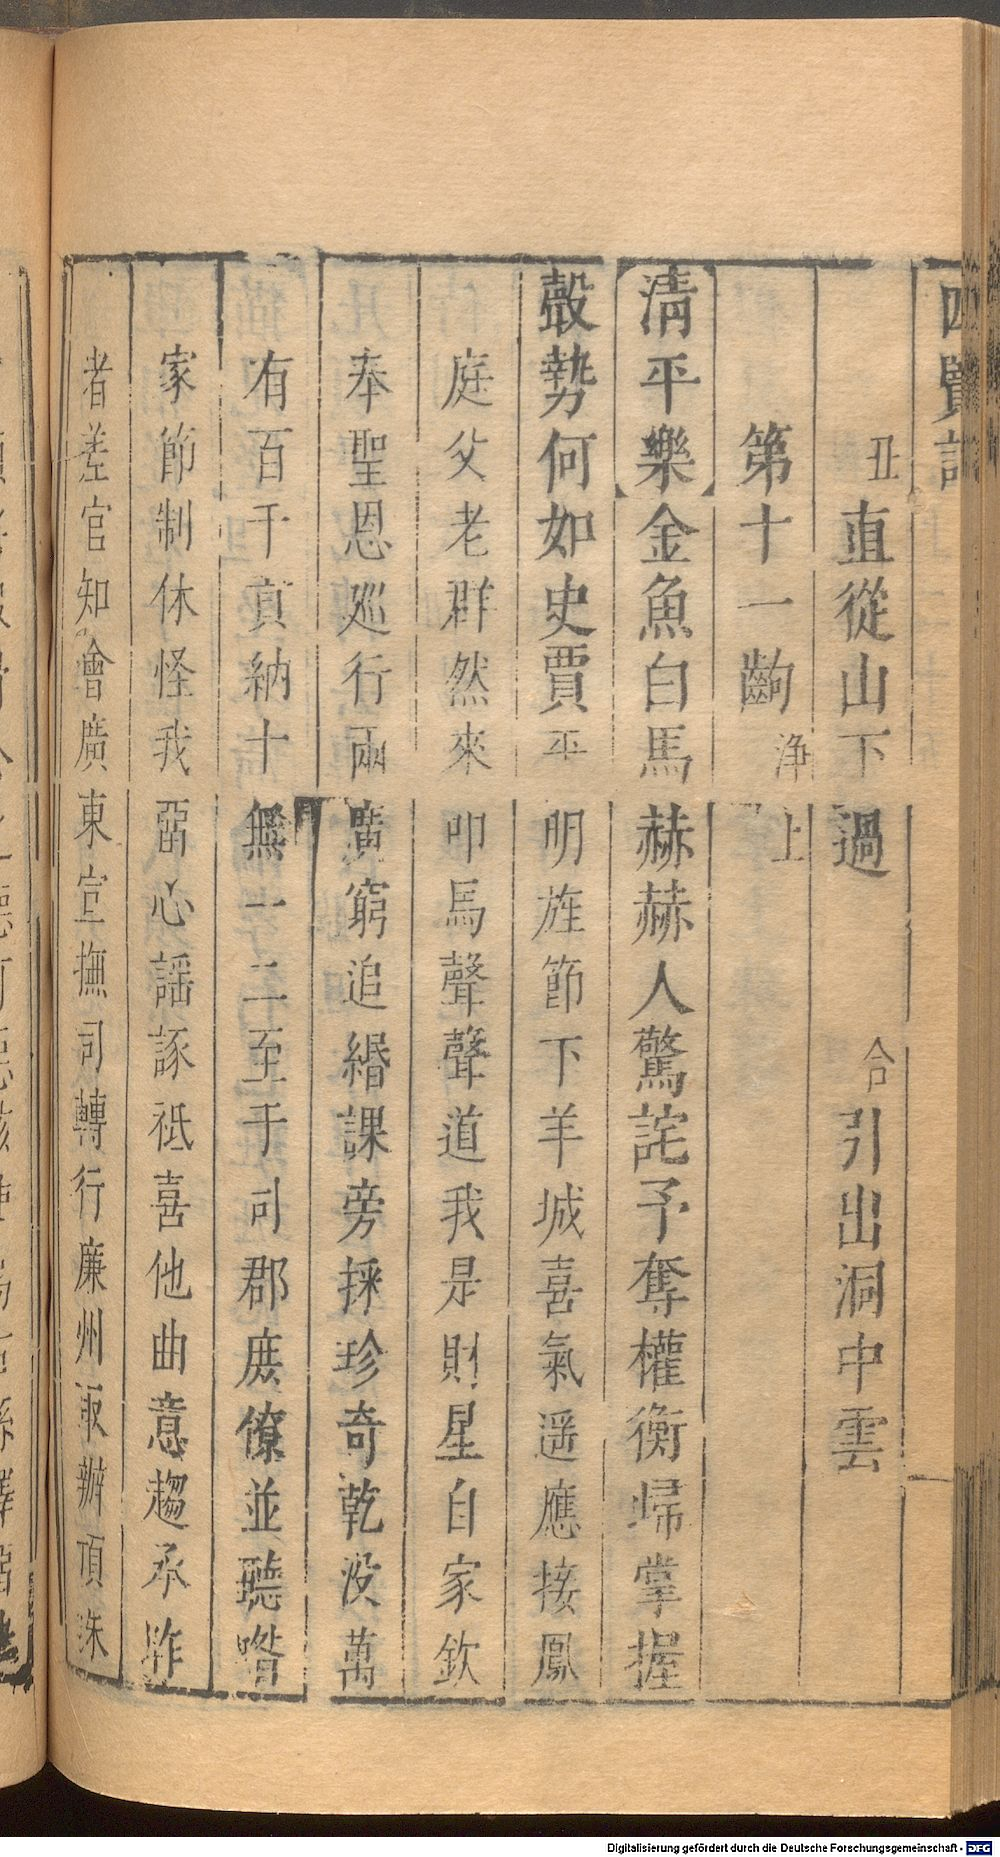 四賢記
丑 直從山下過 合 引出洞中雲
第十一齣 淨上
清平樂 金魚白馬赫赫人驚詫予奪權衡歸掌握
聲勢何如史賈 平明旌節下羊城喜氣遥應接鳳
庭父老群然來叩馬聲聲道我是財星自家欽
奉聖恩廵行兩廣窮追緡課旁採珍奇乾没萬
有百千貢納十無一二至于司郡庶僚並聽喈
家節制休怪我𠵊心謡諑袛喜他曲意趨承昨
者差官知會廣東宣撫司轉行廉州取辦頂珠
Digitalisierung gefördert durch die Deutsche Forschungsgemeinschaft - DFG